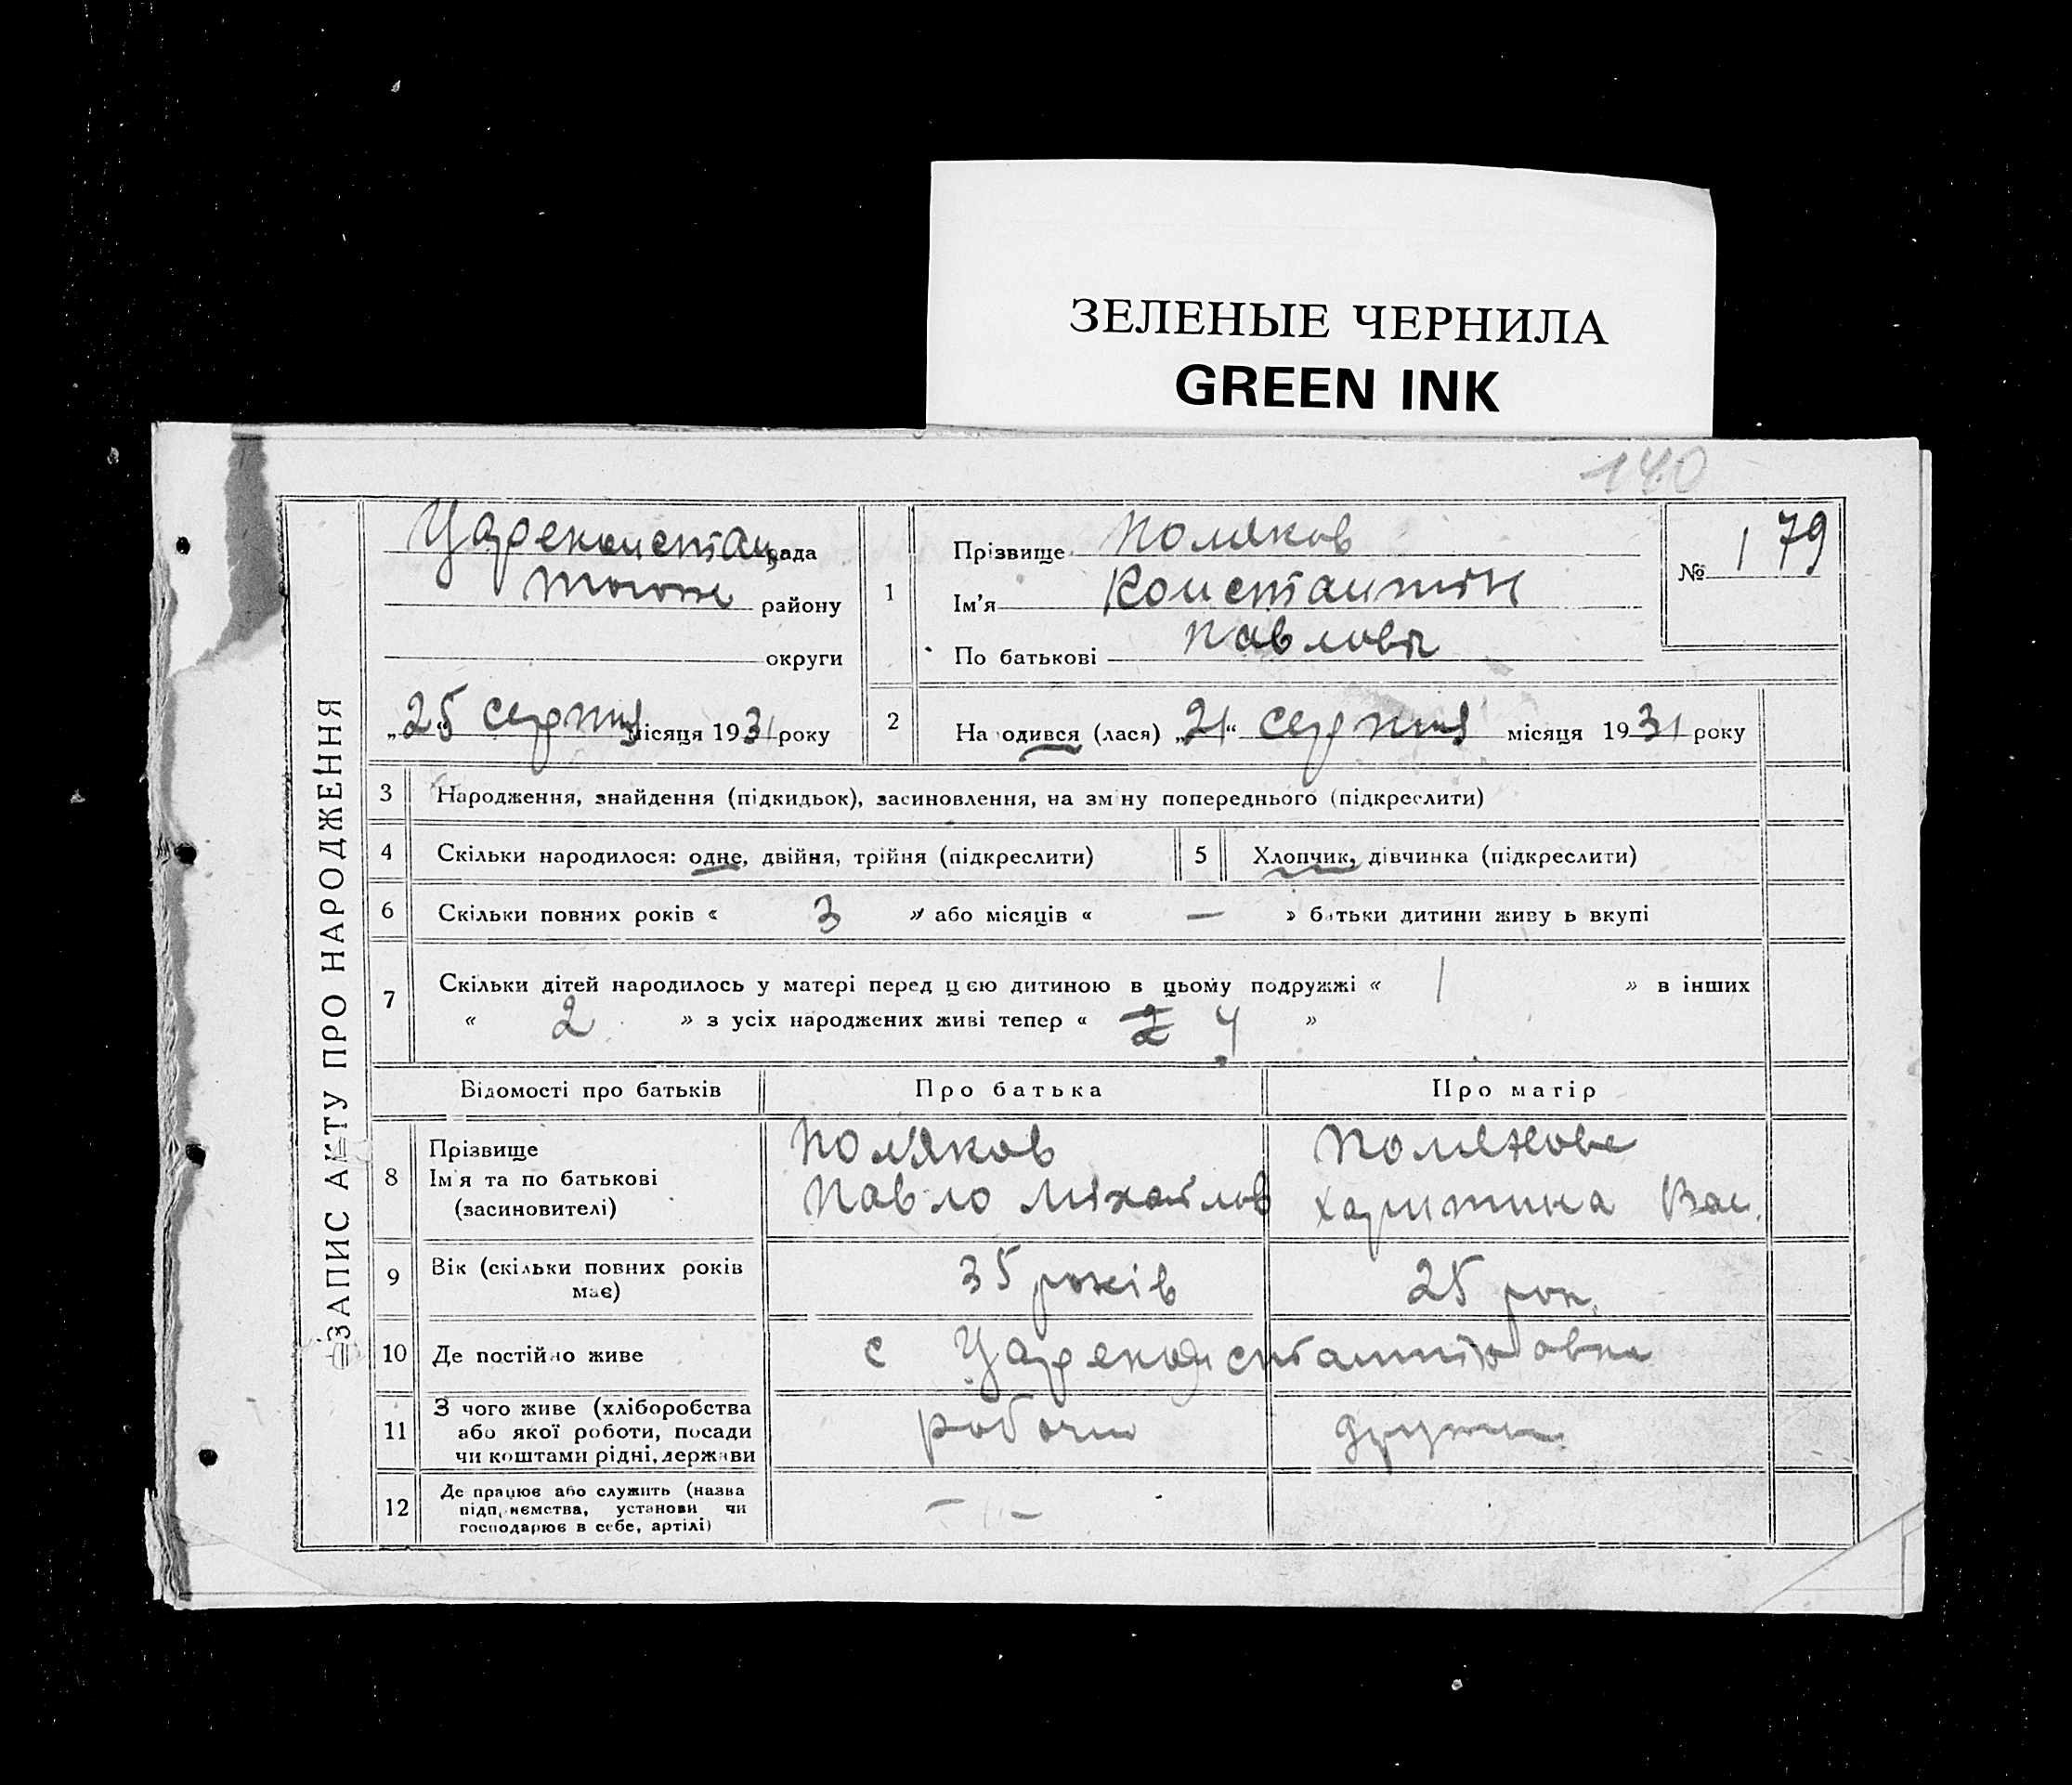 ЗЕЛЕНЫЕ ЧЕРНИЛА
GREEN INK
140
ЗАПИС АКТУ ПРО НАРОДЖЕННЯ
Цареконстан, рада
району
округи
„25“ серпня місяця 1931 року
1 Прізвище Поляков
Ім'я Константин
По батькові Павлов
№ 179
2 На одився (лася) „21“ серпня місяця 1931 року
3 Народження, знайдення (підкидьок), засиновлення, на зм ну попереднього (підкреслити)
4 Скільки народилося: одне, двійня, трійня (підкреслити) 5 Хлопчик, дівчинка (підкреслити)
6 Скільки повних років « 3 » або місяців « — » батьки дитини живу ь вкупі
7 Скільки дітей народилось у матері перед цією дитиною в цьому подружжі « 1 » в інших
« 2 » з усіх народжених живі тепер « 2 4 »
Відомості про батьків Про батька Про матір
8 Прізвище Поляков Полякова
Ім'я та по батькові Павло Михайлов Харитина Вас.
(засиновителі)
9 Вік (скільки повних років має) 35 років 25 рок.
10 Де постійно живе с Цареконстантиновка
11 З чого живе (хліборобства
або якої роботи, посади робочи дружина
чи коштами рідні, держави
12 Де працює або служить (назва
підприємства, установи чи — —
господарює в себе, артілі)